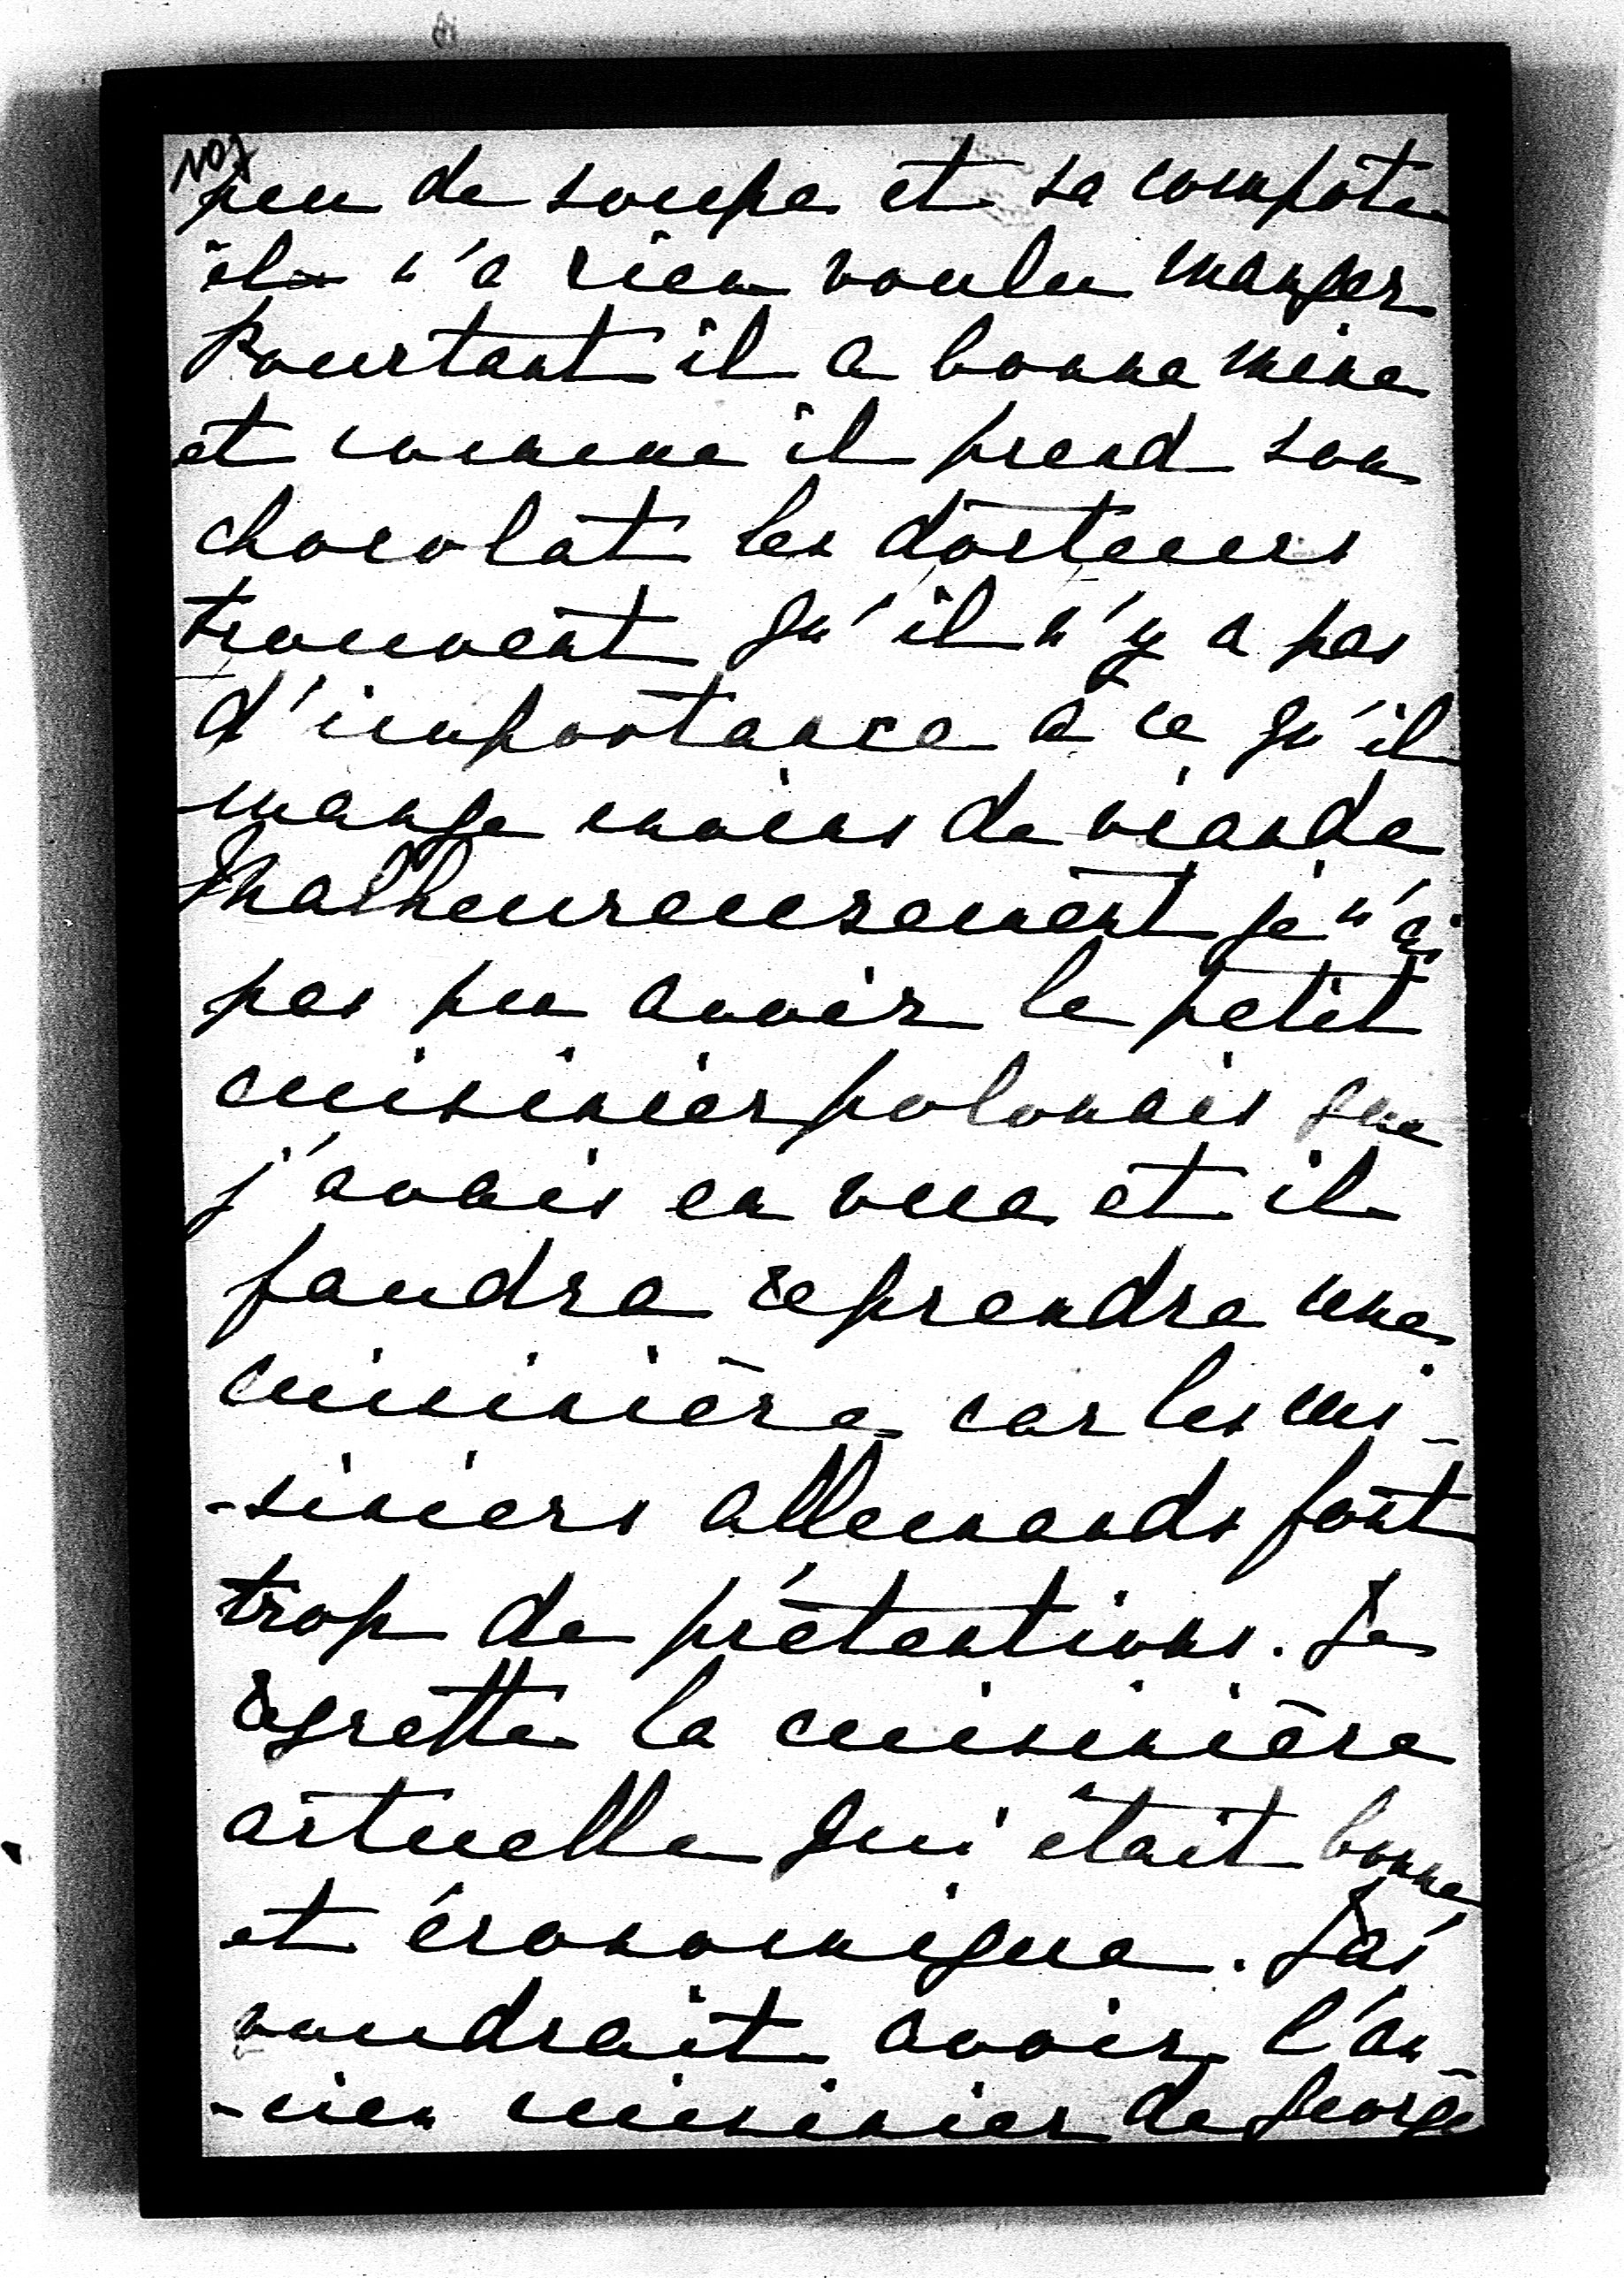 peu de soupe et sa compote
il n'a rien voulu manger
Pourtant il a bonne mine
et comme il prend son
chocolat les docteurs
trouvent qu'il n'y a pas
d'importance à ce qu'il
mange moins de viande
Malheureusement je n'ai
pas pu avoir le petit
cuisinier polonais que
j'avais en vue et il
faudra reprendre une
cuisinière car les cui-
-siniers allemands font
trop de prétentions. Je
regrette la cuisinière
actuelle qui était bonne
et économique.
voudrait avoir l'an-
-cien cuisinier de George